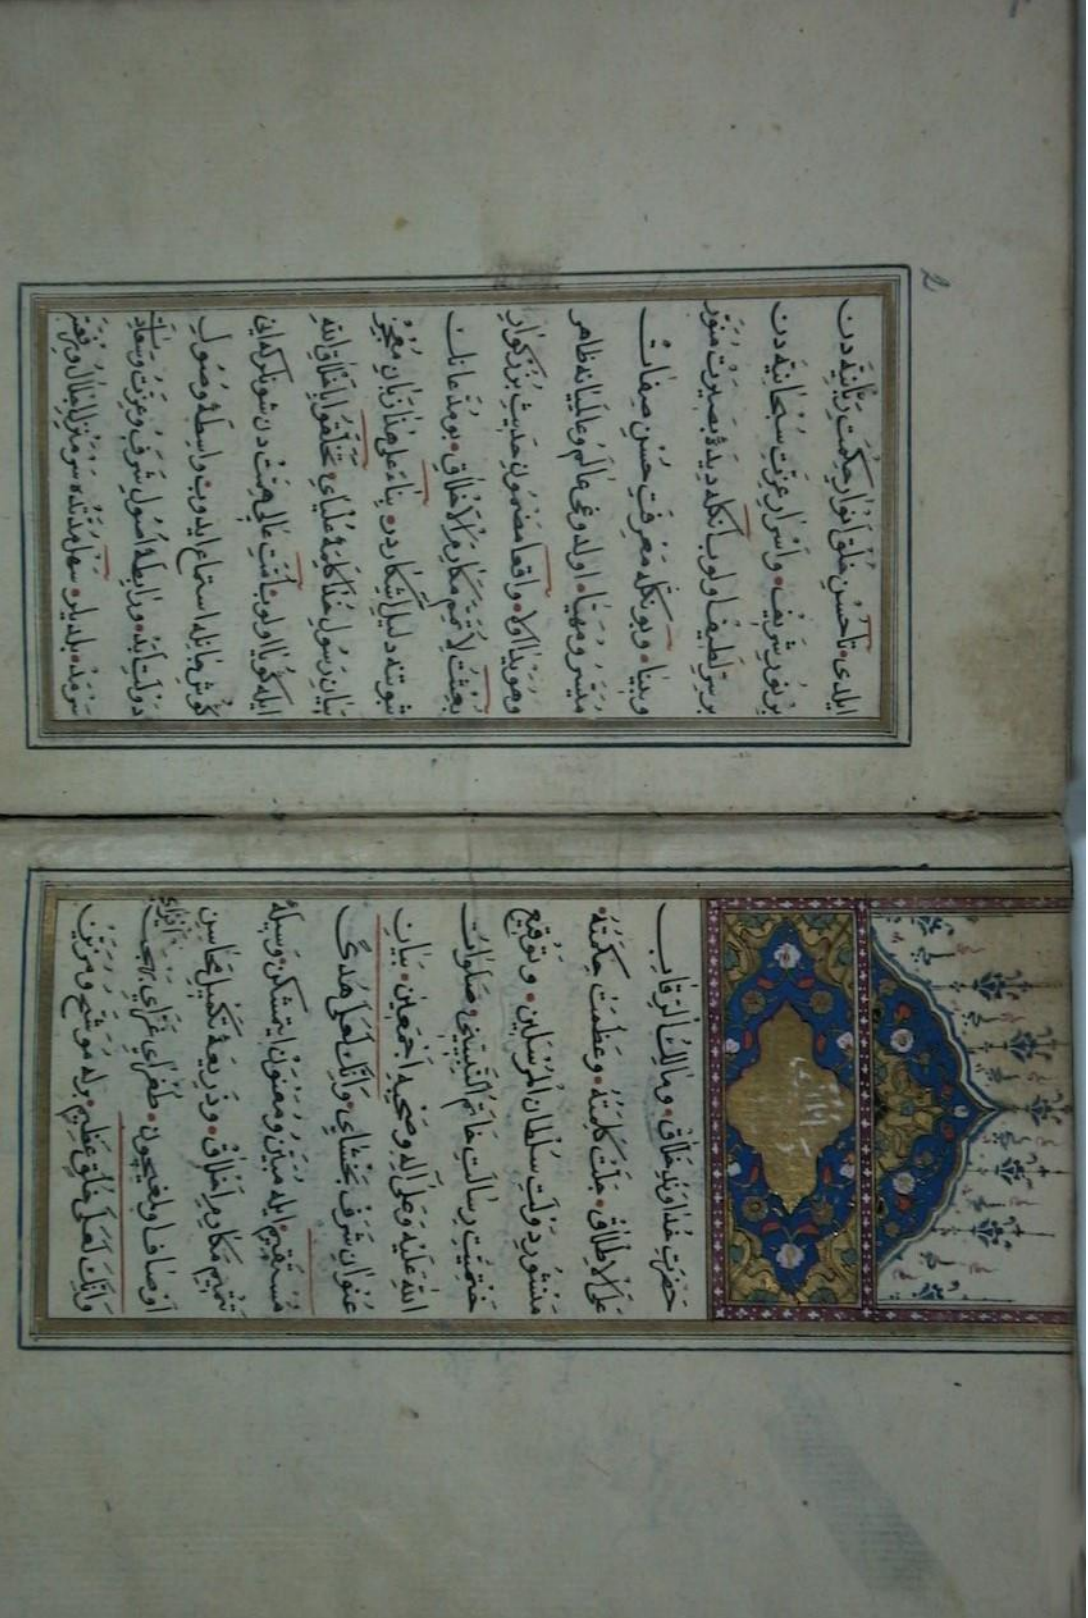 حضرت خداوند خلاق • ومالك الرقاب
على الاطلاق • جلت كلمته • وعظمت حكمته •
منشور دولت سلطان المرسلين • وتوقيع
ختميت رسالت خاتم النبيين صلوات
الله عليه وعلى آله وصحبه اجمعين • بيان
عنوان شرف بخشاى • وانك لعلى هدى
مستقيم • ايله مبين ومعنون ايتشكن • وسيلۀ
تتميم مكارم اخلاق • وذريعۀ تكميل محاسن
اوصاف اولغيچون • طغراى غراى بهجت افزاى
وانك لعلى خلق عظيم • برله موشح ومزين
ايلدى • تا حسن خلق انوار حكمت ربانيه دن
بر نور شريف • واسرار عزت سبحانيه دن
بر سر لطيف اولوب انكله ديدۀ بصيرت منور
وبينا • وبونكله معرفت حسن صفات
ميسر ومهيا • اولدوغى عالم وعالميانه ظاهر
وهويدا اولا • واقعا مضمون حديث بزرگوار
بعثت لأتمم مكارم الاخلاق • بو مدعانك
ثبوتنه دليل اشكار در • بناء على هذا زبان معجز
بيان رسول خدا كلمۀ علياى تخلقوا باخلاق الله
ايله گويا اولوب • امت عالى همت دن شونلر كه انى
گوش جانله استماع ايدوب • واسطۀ وصول
دولت ابد • ورابطۀ اصول شرف وعزت وسعادت
سرمد • بلديلر •